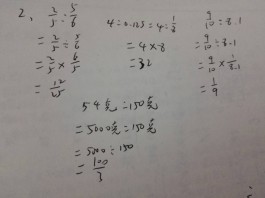 2、 2/5 : 5/6
= 2/5 ÷ 5/6
= 2/5 × 6/5
= 12/25
4 : 0.125 = 4 : 1/8
= 4 × 8
= 32
9/10 : 8.1
= 9/10 ÷ 8.1
= 9/10 × 1/8.1
= 1/9
5千克 : 150克
= 5000克 : 150克
= 5000 ÷ 150
= 100/3